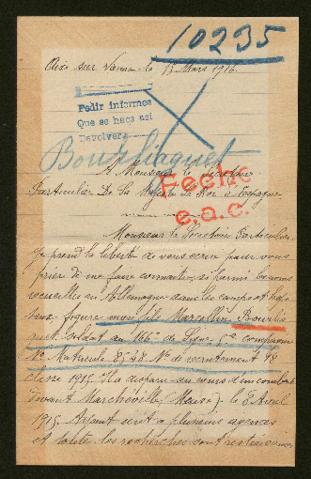 10235
Aixe sur Vienne le 13 Mars 1916
Pedir informes
Que se hace asi
Devolvera
Bourliaguet
A Monsieur le secrétaire
Particulier De Sa Majesté le Roi d'Espagne
Fecho
e.a.c.
Monsieur le Secrétaire Particulier
Je prend la liberté de vous écrire pour vous
prier de me faire connaître, si parmi les noms
recueillis en Allemagne dans les camps et hopi
taux figure mon fils Marcellin Bourlia
guet soldat au 166e de Ligne 5e compagnie
No Matricule 8548 No de recrutement 78
classe 1915. il a disparu au cours d'un combat
devant Marchéville (Meuse) le 8 Avril
1915. Ayant écrit a plusieurs agences
et toute les recherches sont restées vaines